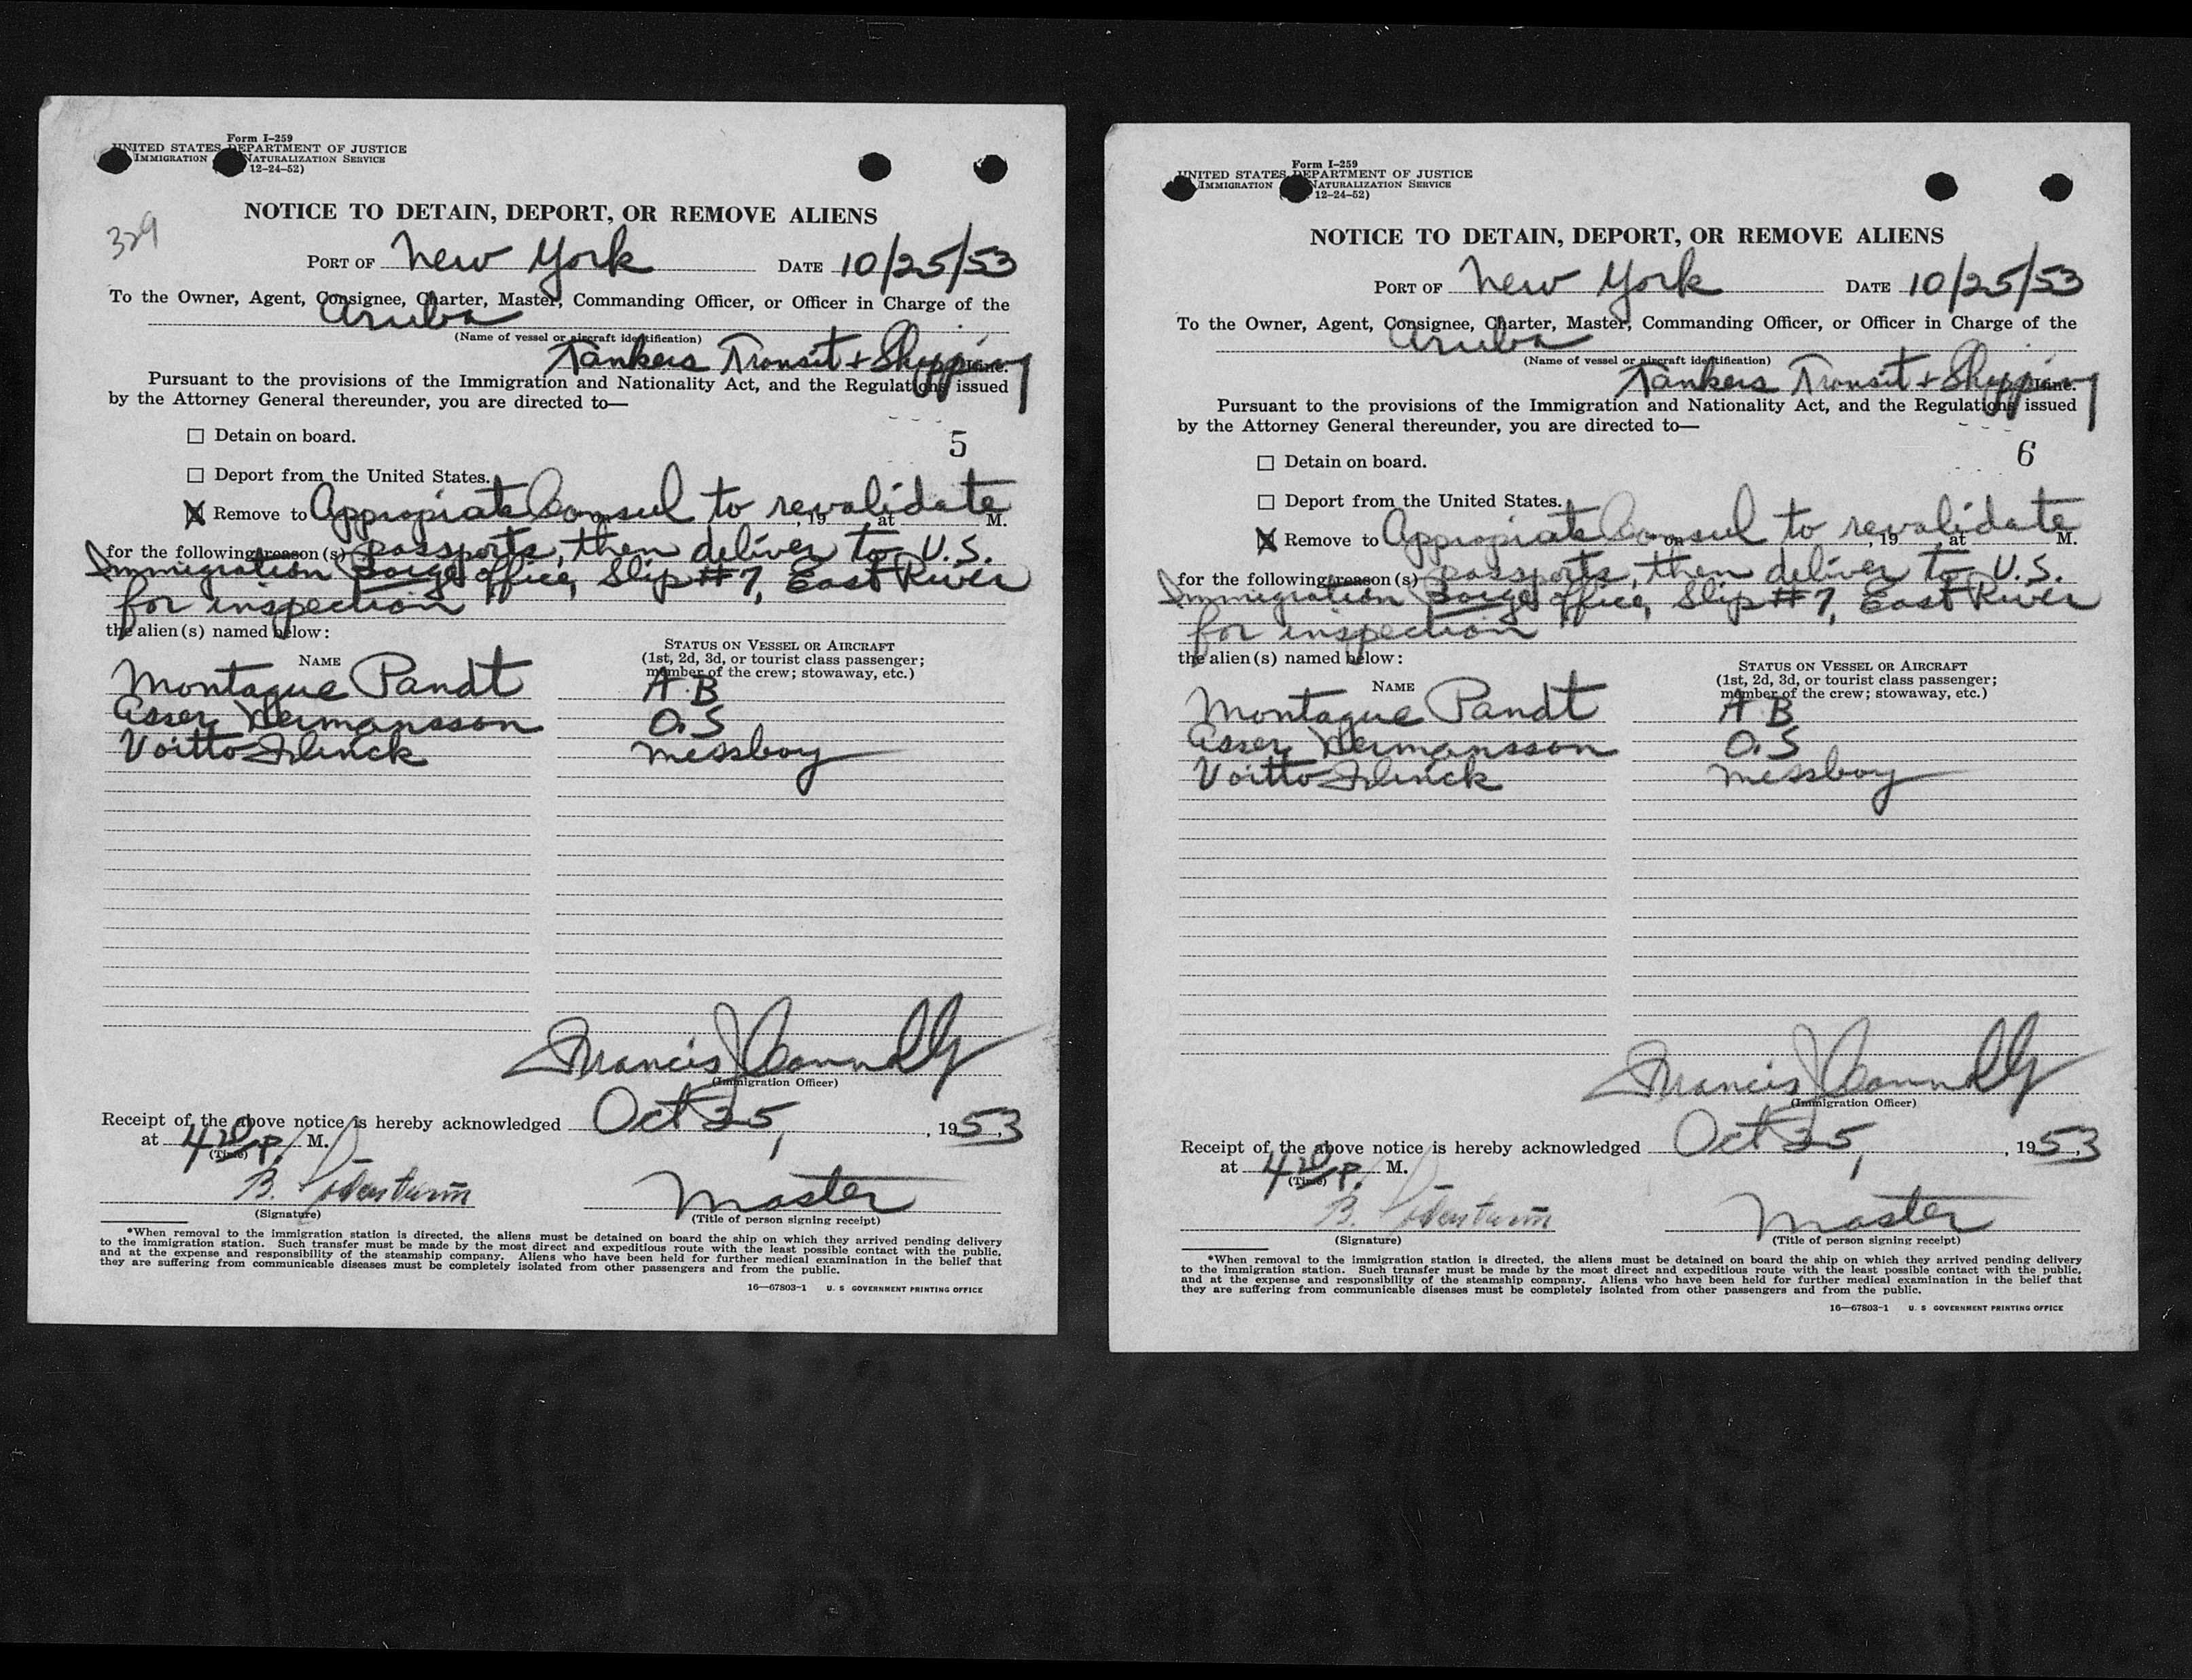 Form I-259
UNITED STATES DEPARTMENT OF JUSTICE
IMMIGRATION NATURALIZATION SERVICE
12-24-52)
NOTICE TO DETAIN, DEPORT, OR REMOVE ALIENS
329
PORT OF New York DATE 10/25/53
To the Owner, Agent, Consignee, Charter, Master, Commanding Officer, or Officer in Charge of the
Aruba
(Name of vessel or aircraft identification)
Tankers Transit + Shipping Line.
Pursuant to the provisions of the Immigration and Nationality Act, and the Regulations issued
by the Attorney General thereunder, you are directed to—
☐ Detain on board.
5
☐ Deport from the United States.
☒ Remove to Appropiate Consul to revalidate on , 19 , at M.
for the following reason(s) passports, then deliver to U.S.
Immigration Barge Office, Slip #7, East River
for inspection
the alien(s) named below:
NAME
STATUS ON VESSEL OR AIRCRAFT
(1st, 2d, 3d, or tourist class passenger;
member of the crew; stowaway, etc.)
Montague Pandt A.B
Asser Hermansson O.S
Voitto Flinck messboy
Francis J Connolly
(Immigration Officer)
Receipt of the above notice is hereby acknowledged Oct 25, , 1953
at 420 P. M.
(Time)
B. Master
(Signature) (Title of person signing receipt)
*When removal to the immigration station is directed, the aliens must be detained on board the ship on which they arrived pending delivery
to the immigration station. Such transfer must be made by the most direct and expeditious route with the least possible contact with the public,
and at the expense and responsibility of the steamship company. Aliens who have been held for further medical examination in the belief that
they are suffering from communicable diseases must be completely isolated from other passengers and from the public.
16—67803-1 U. S GOVERNMENT PRINTING OFFICE
Form I-259
UNITED STATES DEPARTMENT OF JUSTICE
IMMIGRATION NATURALIZATION SERVICE
12-24-52)
NOTICE TO DETAIN, DEPORT, OR REMOVE ALIENS
PORT OF New York DATE 10/25/53
To the Owner, Agent, Consignee, Charter, Master, Commanding Officer, or Officer in Charge of the
Aruba
(Name of vessel or aircraft identification)
Tankers Transit + Shipping Line.
Pursuant to the provisions of the Immigration and Nationality Act, and the Regulations issued
by the Attorney General thereunder, you are directed to—
☐ Detain on board.
6
☐ Deport from the United States.
☒ Remove to Appropiate Consul to revalidate on , 19 , at M.
for the following reason(s) passports, then deliver to U.S.
Immigration Barge Office, Slip #7, East River
for inspection
the alien(s) named below:
NAME
STATUS ON VESSEL OR AIRCRAFT
(1st, 2d, 3d, or tourist class passenger;
member of the crew; stowaway, etc.)
Montague Pandt A B
Asser Hermansson O.S
Voitto Flinck messboy
Francis J Connolly
(Immigration Officer)
Receipt of the above notice is hereby acknowledged Oct 25, , 1953
at 420 P. M.
(Time)
B. Master
(Signature) (Title of person signing receipt)
*When removal to the immigration station is directed, the aliens must be detained on board the ship on which they arrived pending delivery
to the immigration station. Such transfer must be made by the most direct and expeditious route with the least possible contact with the public,
and at the expense and responsibility of the steamship company. Aliens who have been held for further medical examination in the belief that
they are suffering from communicable diseases must be completely isolated from other passengers and from the public.
16—67803-1 U. S GOVERNMENT PRINTING OFFICE